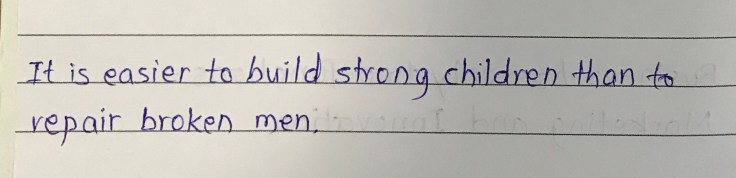 It is easier to build strong children than to
repair broken men.